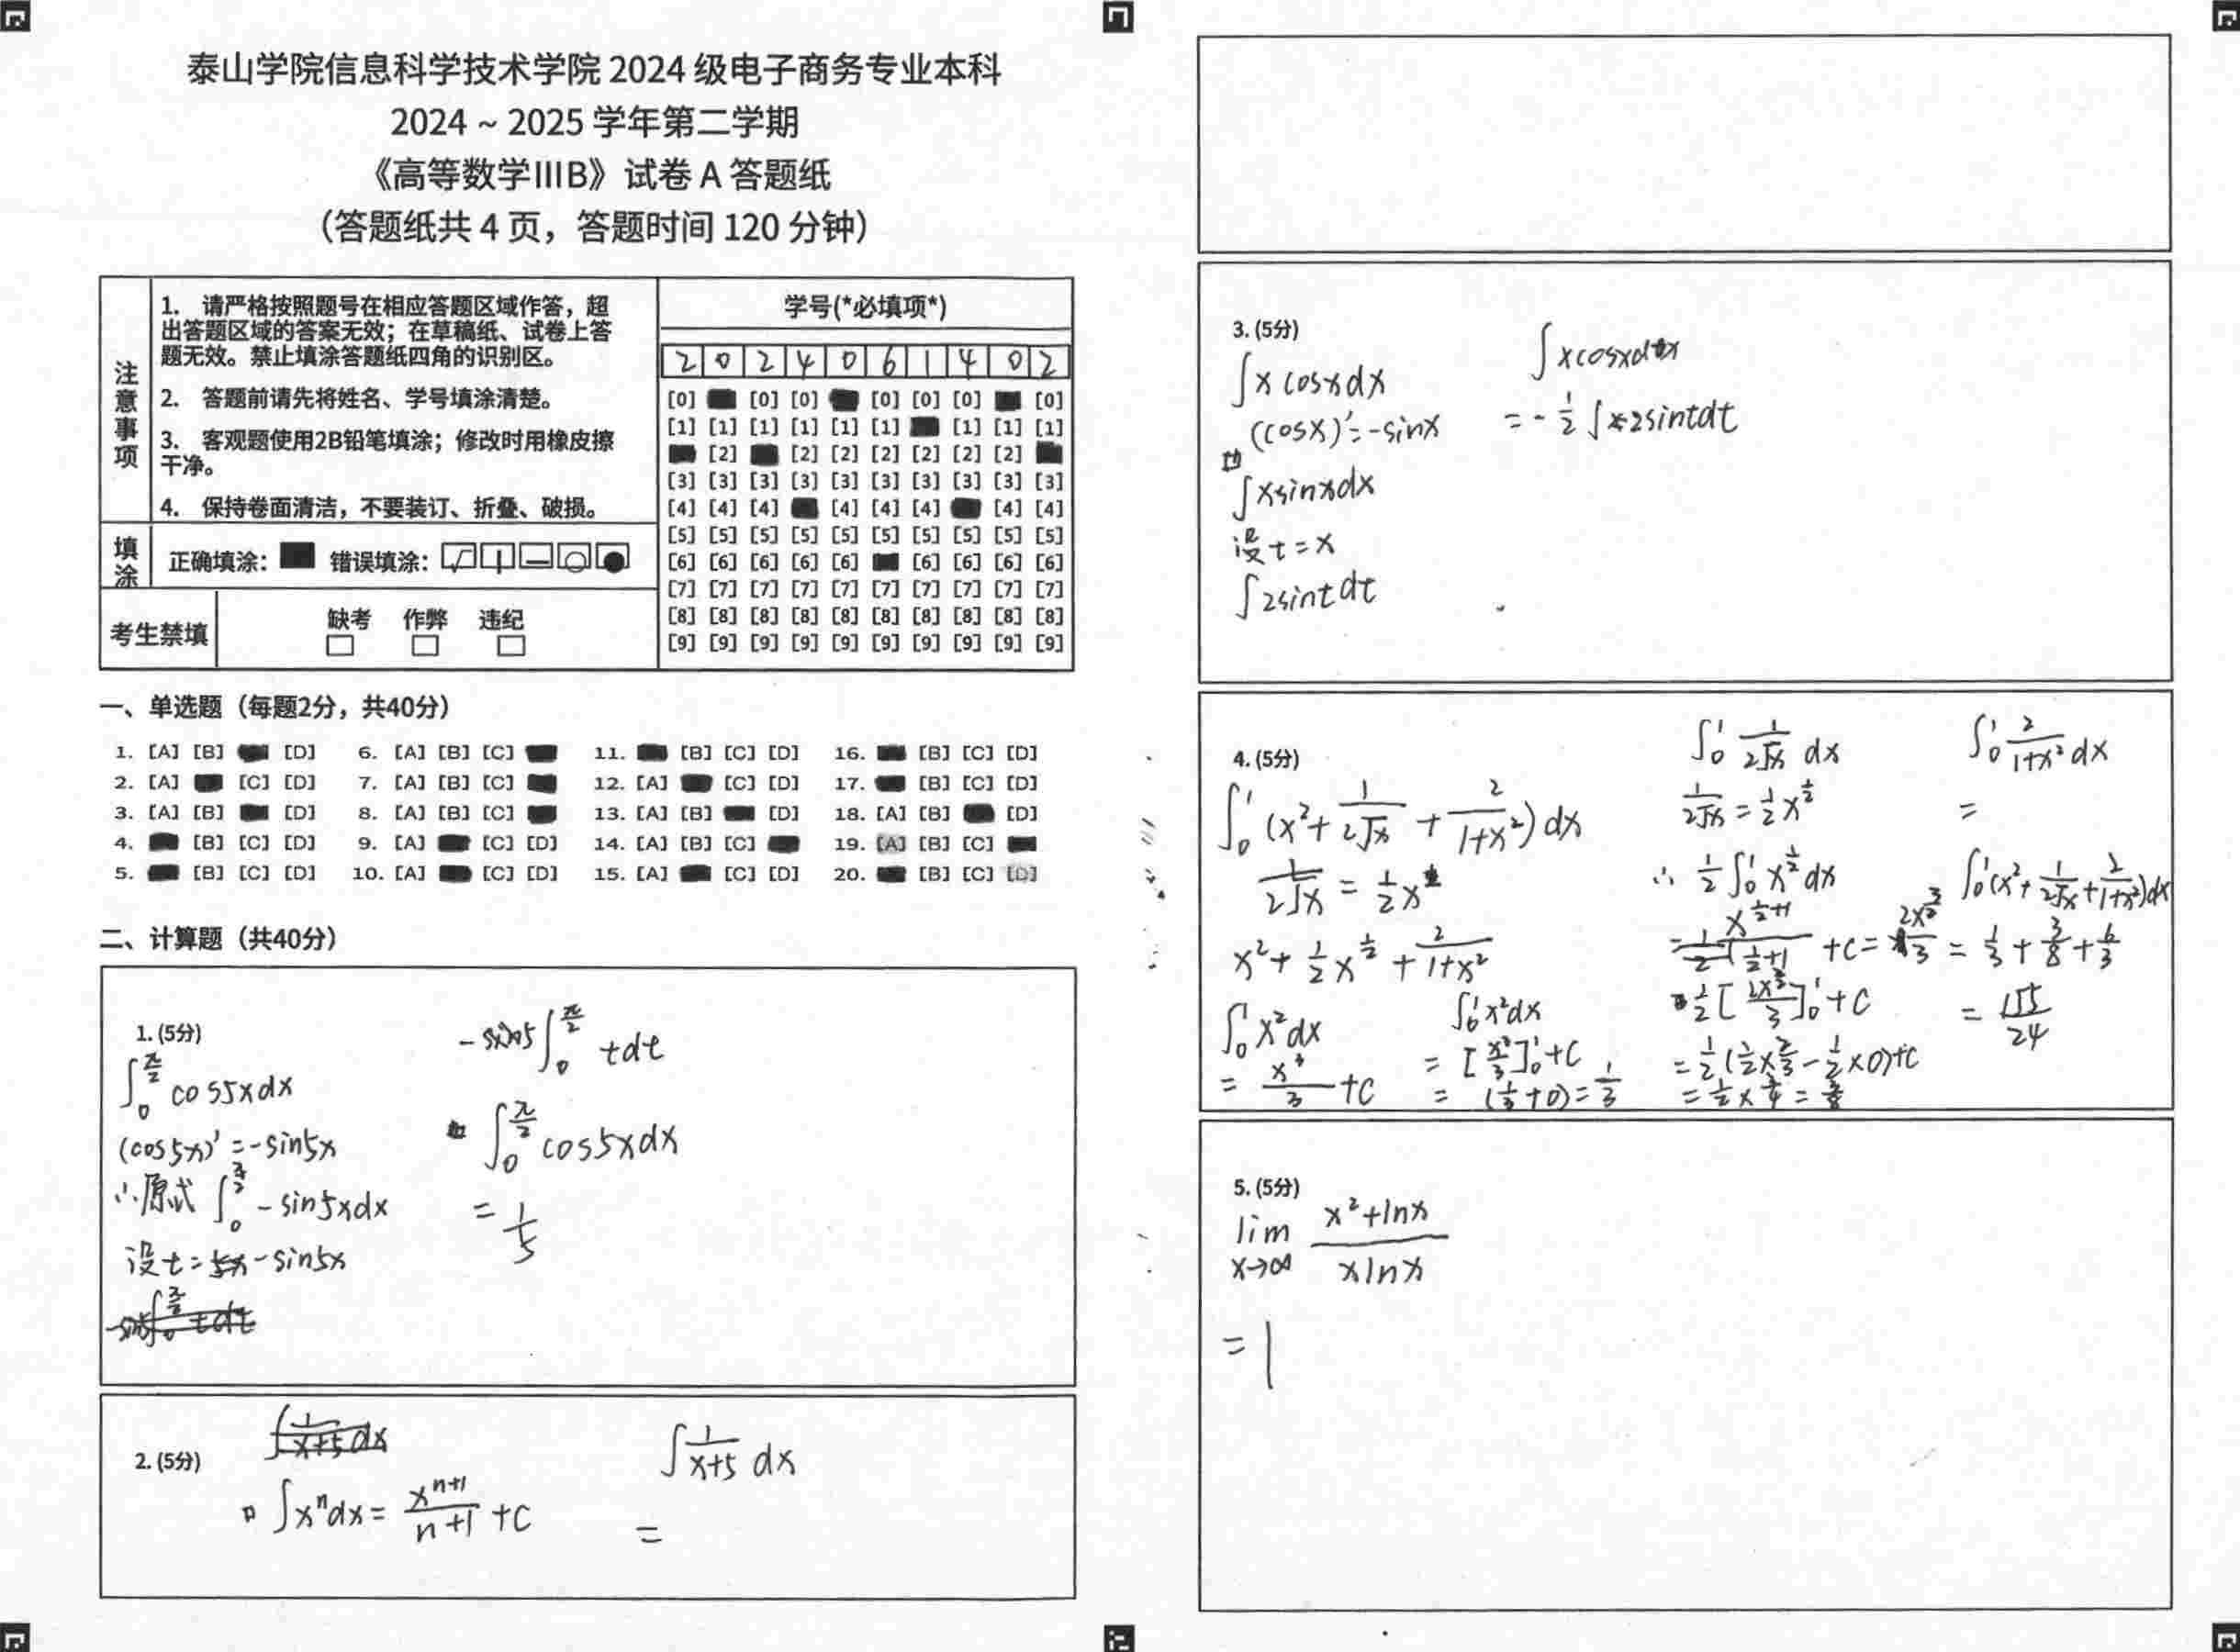 泰山学院信息科学技术学院 2024 级电子商务专业本科
2024 ~ 2025 学年第二学期
《高等数学ⅢB》试卷 A 答题纸
（答题纸共 4 页，答题时间 120 分钟）
注意事项
1. 请严格按照题号在相应答题区域作答，超
出答题区域的答案无效；在草稿纸、试卷上答
题无效。禁止填涂答题纸四角的识别区。
2. 答题前请先将姓名、学号填涂清楚。
3. 客观题使用2B铅笔填涂；修改时用橡皮擦
干净。
4. 保持卷面清洁，不要装订、折叠、破损。
填涂
正确填涂： 错误填涂：
考生禁填
缺考 作弊 违纪
学号(*必填项*)
2 0 2 4 0 6 1 4 0 2
[0] [0] [0] [0] [0] [0] [0]
[1] [1] [1] [1] [1] [1] [1] [1] [1]
[2] [2] [2] [2] [2] [2] [2]
[3] [3] [3] [3] [3] [3] [3] [3] [3] [3]
[4] [4] [4] [4] [4] [4] [4] [4]
[5] [5] [5] [5] [5] [5] [5] [5] [5] [5]
[6] [6] [6] [6] [6] [6] [6] [6] [6]
[7] [7] [7] [7] [7] [7] [7] [7] [7] [7]
[8] [8] [8] [8] [8] [8] [8] [8] [8] [8]
[9] [9] [9] [9] [9] [9] [9] [9] [9] [9]
一、单选题（每题2分，共40分）
1. [A] [B] [D] 6. [A] [B] [C] 11. [B] [C] [D] 16. [B] [C] [D]
2. [A] [C] [D] 7. [A] [B] [C] 12. [A] [C] [D] 17. [B] [C] [D]
3. [A] [B] [D] 8. [A] [B] [C] 13. [A] [B] [D] 18. [A] [B] [D]
4. [B] [C] [D] 9. [A] [C] [D] 14. [A] [B] [C] 19. [A] [B] [C]
5. [B] [C] [D] 10. [A] [C] [D] 15. [A] [C] [D] 20. [B] [C] [D]
二、计算题（共40分）
1. (5分)
∫₀^(π/2) cos5xdx
(cos5x)′=-sin5x
∴原式 ∫₀^(π/2) -sin5xdx
设t= -sin5x
∫₀^(π/2) tdt
∫₀^(π/2) cos5xdx
= 1/5
2. (5分)
∫ 1/(x+5) dx
∫xⁿdx= xⁿ⁺¹/(n+1) +C
∫ 1/(x+5) dx
=
3. (5分)
∫x cosxdx
(cosx)′=-sinx
∫xsinxdx
设t=x
∫2sintdt
∫xcosxdx
=-1/2 ∫x·2sintdt
4. (5分)
∫₀¹ (x²+ 1/(2√x) + 2/(1+x²)) dx
1/(2√x) = 1/2 x
x²+ 1/2 x^(1/2) + 2/(1+x²)
∫₀¹ x²dx
= x³/3 +C
∫₀¹ x²dx
= [x³/3]₀¹+C
= (1/3+0)=1/3
∫₀¹ 1/(2√x) dx
1/(2√x) = 1/2 x^(1/2)
∴ 1/2 ∫₀¹ x^(1/2) dx
= 1/2 x^(1/2+1)/(1/2+1) +C= 2x^(3/2)/3
1/2 [2x^(3/2)/3]₀¹+C
= 1/2 (1/2×2/3 - 1/2×0)+C
∫₀¹ 2/(1+x²) dx
=
∫₀¹(x²+ 1/(2√x) + 2/(1+x²))dx
= 1/3 + 3/8 + 6/3
= 155/24
5. (5分)
lim x→∞ (x²+lnx)/(xlnx)
=1